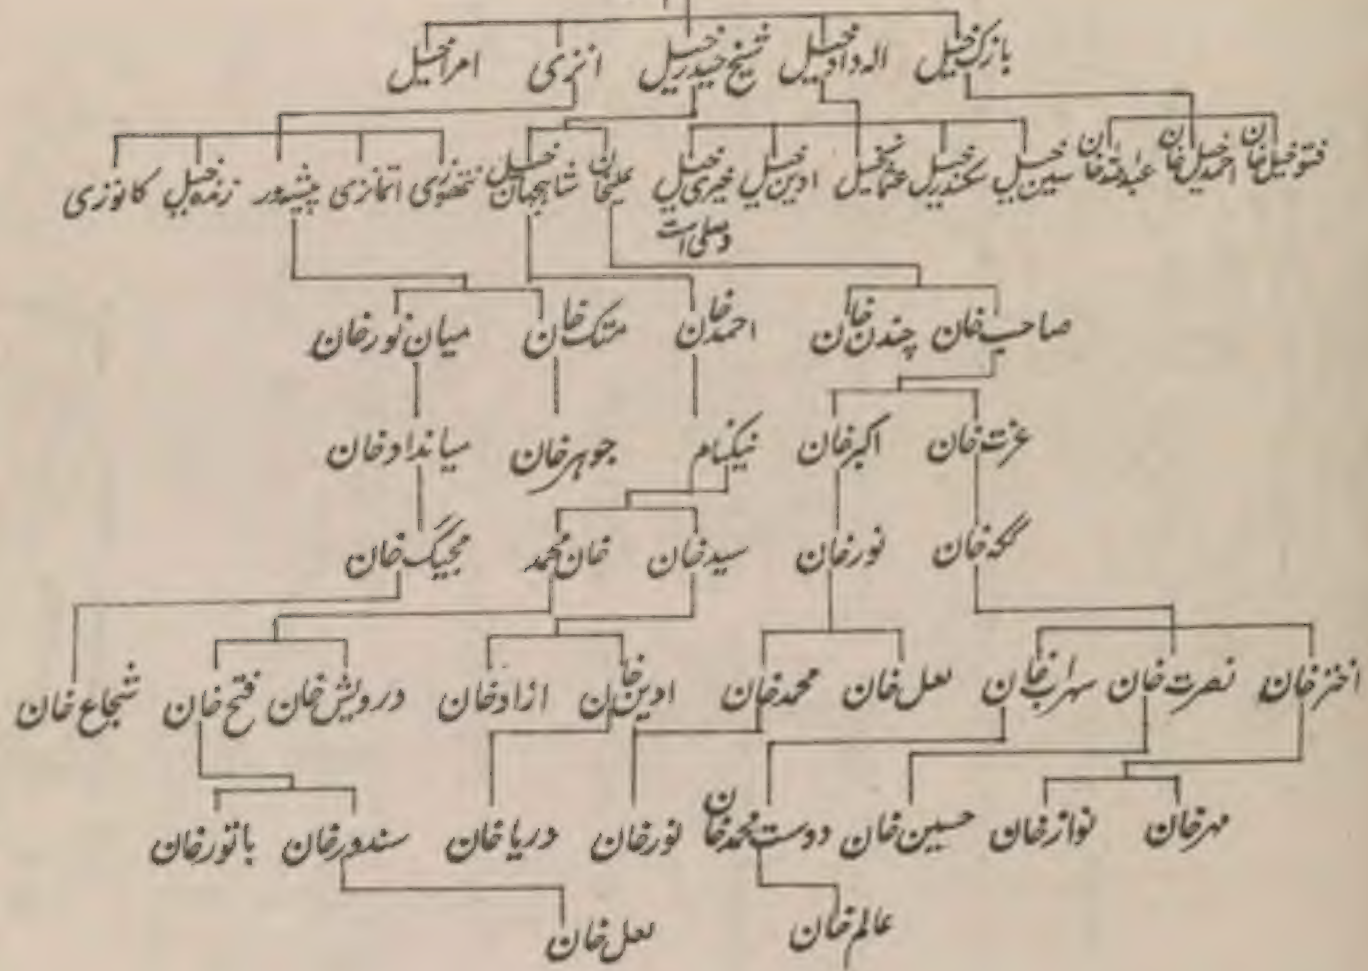 بازک خیل اله داد خیل شیخ حیدر خیل انزی امراخیل
فتوخیل خان احمد خیل خان عبدالله خان حسین خیل سکندر خیل عثمانخیل ادین خیل خیری خیل علیخان شاهجهان خیل اتمانزی پیشه ور زنده خیل کانوزی
وصلی است
صاحب خان چندن خان احمد خان متک خان میان نور خان
عزت خان اکبر خان نیکنام جوهر خان میانداد خان
نور خان سید خان خان محمد
اختر خان نصرت خان سهراب خان لعل خان محمد خان ادین خان ازاد خان درویش خان فتح خان شجاع خان
مهر خان نواز خان حسین خان دوست محمد خان نور خان دریا خان
عالم خان لعل خان